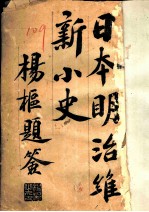 日本明治維
新小史
楊樞題簽